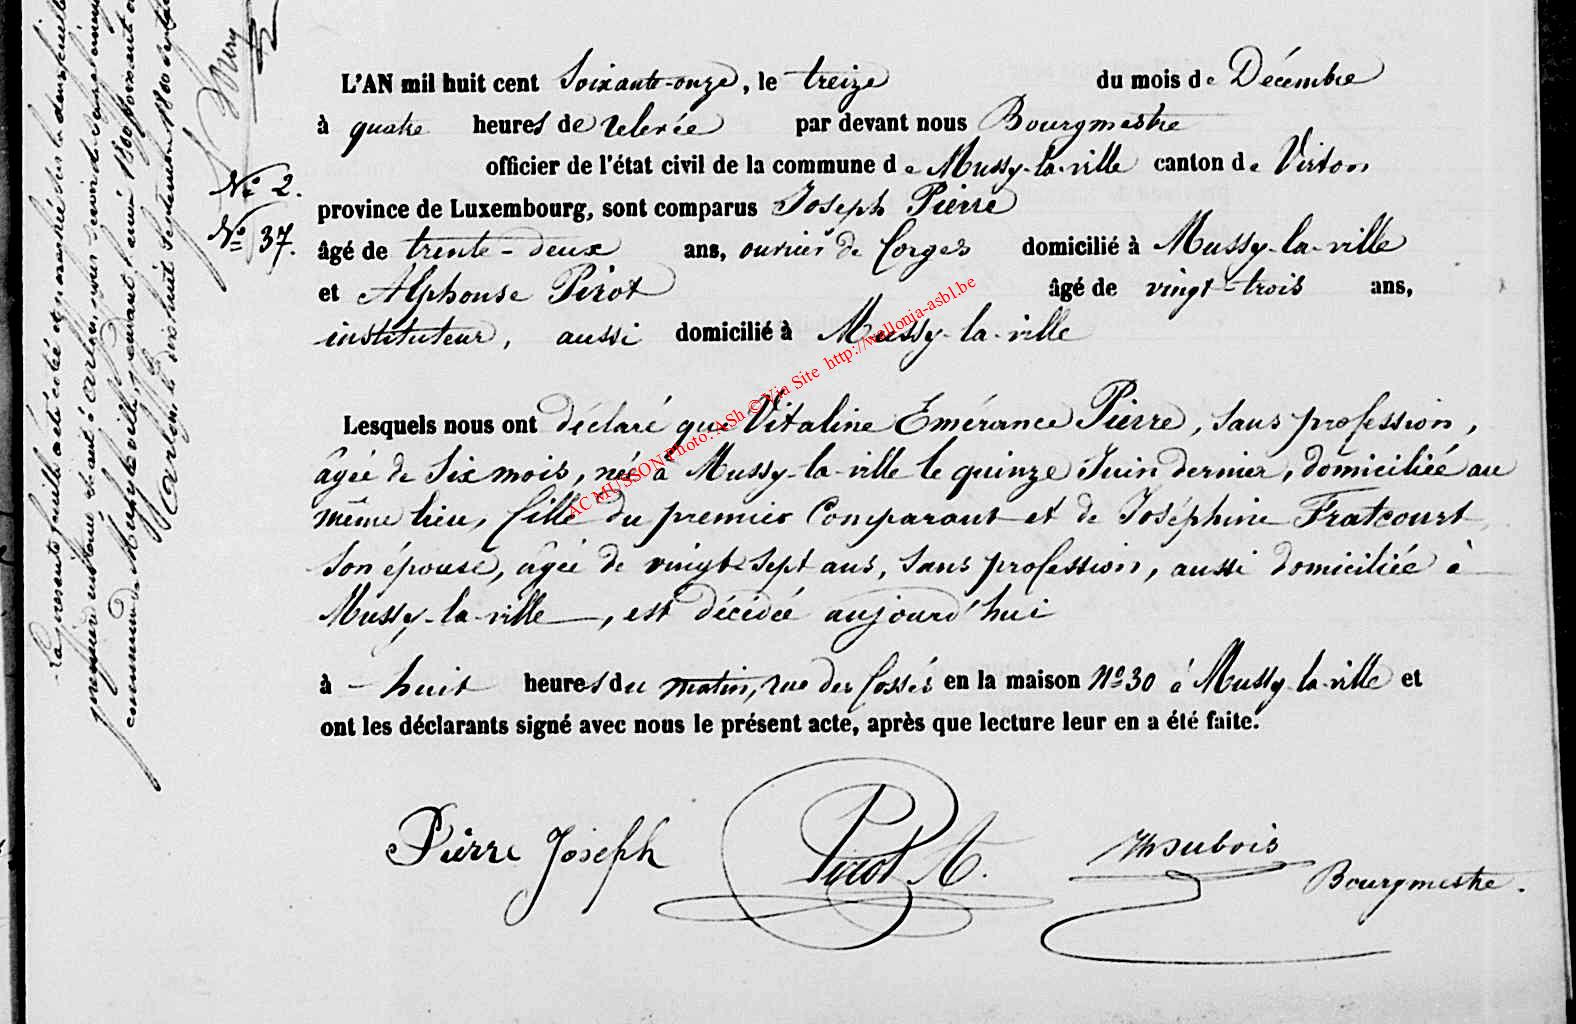 L'AN mil huit cent Soixante-onze, le treize du mois de Décembre
à quatre heures de relevée par devant nous Bourgmestre
officier de l'état civil de la commune de Mussy-la-ville canton de Virton
province de Luxembourg, sont comparus Joseph Pierre
âgé de trente-deux ans, ouvrier de forges domicilié à Mussy-la-ville
et Alphonse Pirot âgé de vingt-trois ans,
instituteur, aussi domicilié à Mussy-la-ville
Lesquels nous ont déclaré que Vitaline Emérance Pierre, sans profession,
âgée de six mois, née à Mussy-la-ville le quinze Juin dernier, domiciliée au
même lieu, fille du premier Comparant et de Joséphine Fratcourt
son épouse, âgée de vingt sept ans, sans profession, aussi domiciliée à
Mussy-la-ville, est décédée aujourd'hui
à huit heures du matin, rue des fossés en la maison N° 30 à Mussy-la-ville et
ont les déclarants signé avec nous le présent acte, après que lecture leur en a été faite.
Pierre Joseph
Pirot A.
Dubois
Bourgmestre.
N° 2.
N° 37.
AC MUSSON Photo: ASh © Via Site http://wallonia-asbl.be